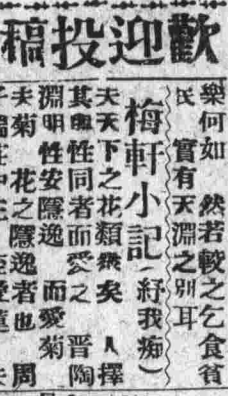 歡迎投稿
樂何如 然若較之乞食貧
民 實有天淵之別耳
梅軒小記（紓我痴）
夫天下之花類衆矣 人擇
其與性同者而愛之 晋陶
淵明性安隱逸 而愛菊
夫菊 花之隱逸者也 周